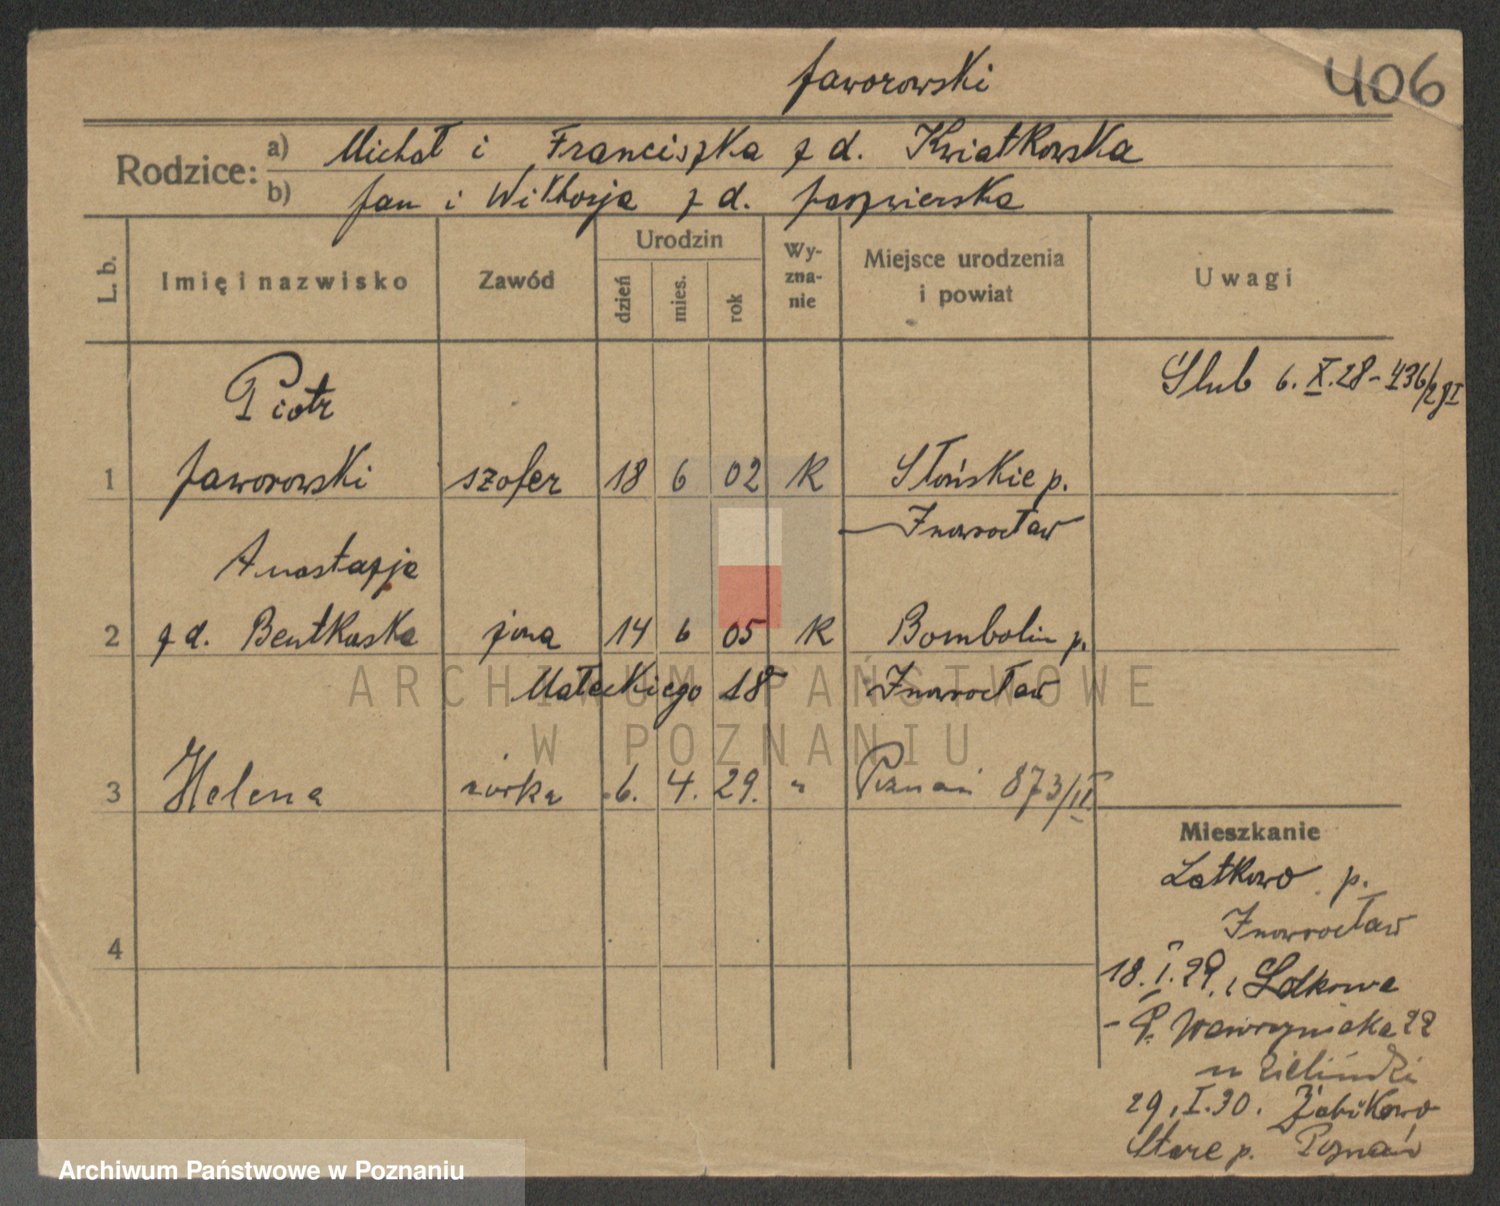 Jaworowski 406
Rodzice: a) Michał i Franciszka z d. Kwiatkowska
b) Jan i Wiktorja z d.
L. b. Imię i nazwisko Zawód Urodzin dzień mies. rok Wy-zna-nie Miejsce urodzenia i powiat Uwagi
Piotr Slub 6. X. 28 - 436/28 I
1 Jaworowski szofer 18 6 02 K Słońskie p.
Inowrocław
Anastazja
2 z d. Bentkowska żona 14 6 05 K Bombolin p.
Małeckiego 18 Inowrocław
3 Helena córka 6. 4. 29. " Poznań 873/II.
Mieszkanie
Latkowo p.
Inowrocław
4
18. I. 29. z Latkowa
- P. Wawrzyniaka 22
u Zieliński
29. I. 30. Żabikowo
Stare p. Poznań
ARCHIWUM PAŃSTWOWE
W POZNANIU
Archiwum Państwowe w Poznaniu